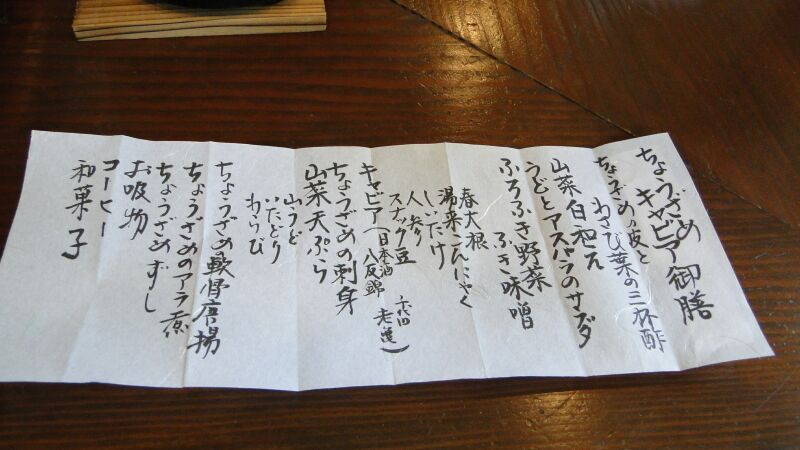 ちょうざめ
キャビア御膳
ちょうざめの皮と
わさび葉の三杯酢
山菜白和え
うどとアスパラのサラダ
ふろふき野菜
ふき味噌
春大根
湯来こんにゃく
しいたけ
人参
スナック豆
キャビア(日本酒
八反錦
老亀)
ちょうざめの刺身
山菜天ぷら
山うど
いたどり
わらび
ちょうざめ軟骨唐揚
ちょうざめのアラ煮
ちょうざめずし
お吸物
コーヒー
和菓子